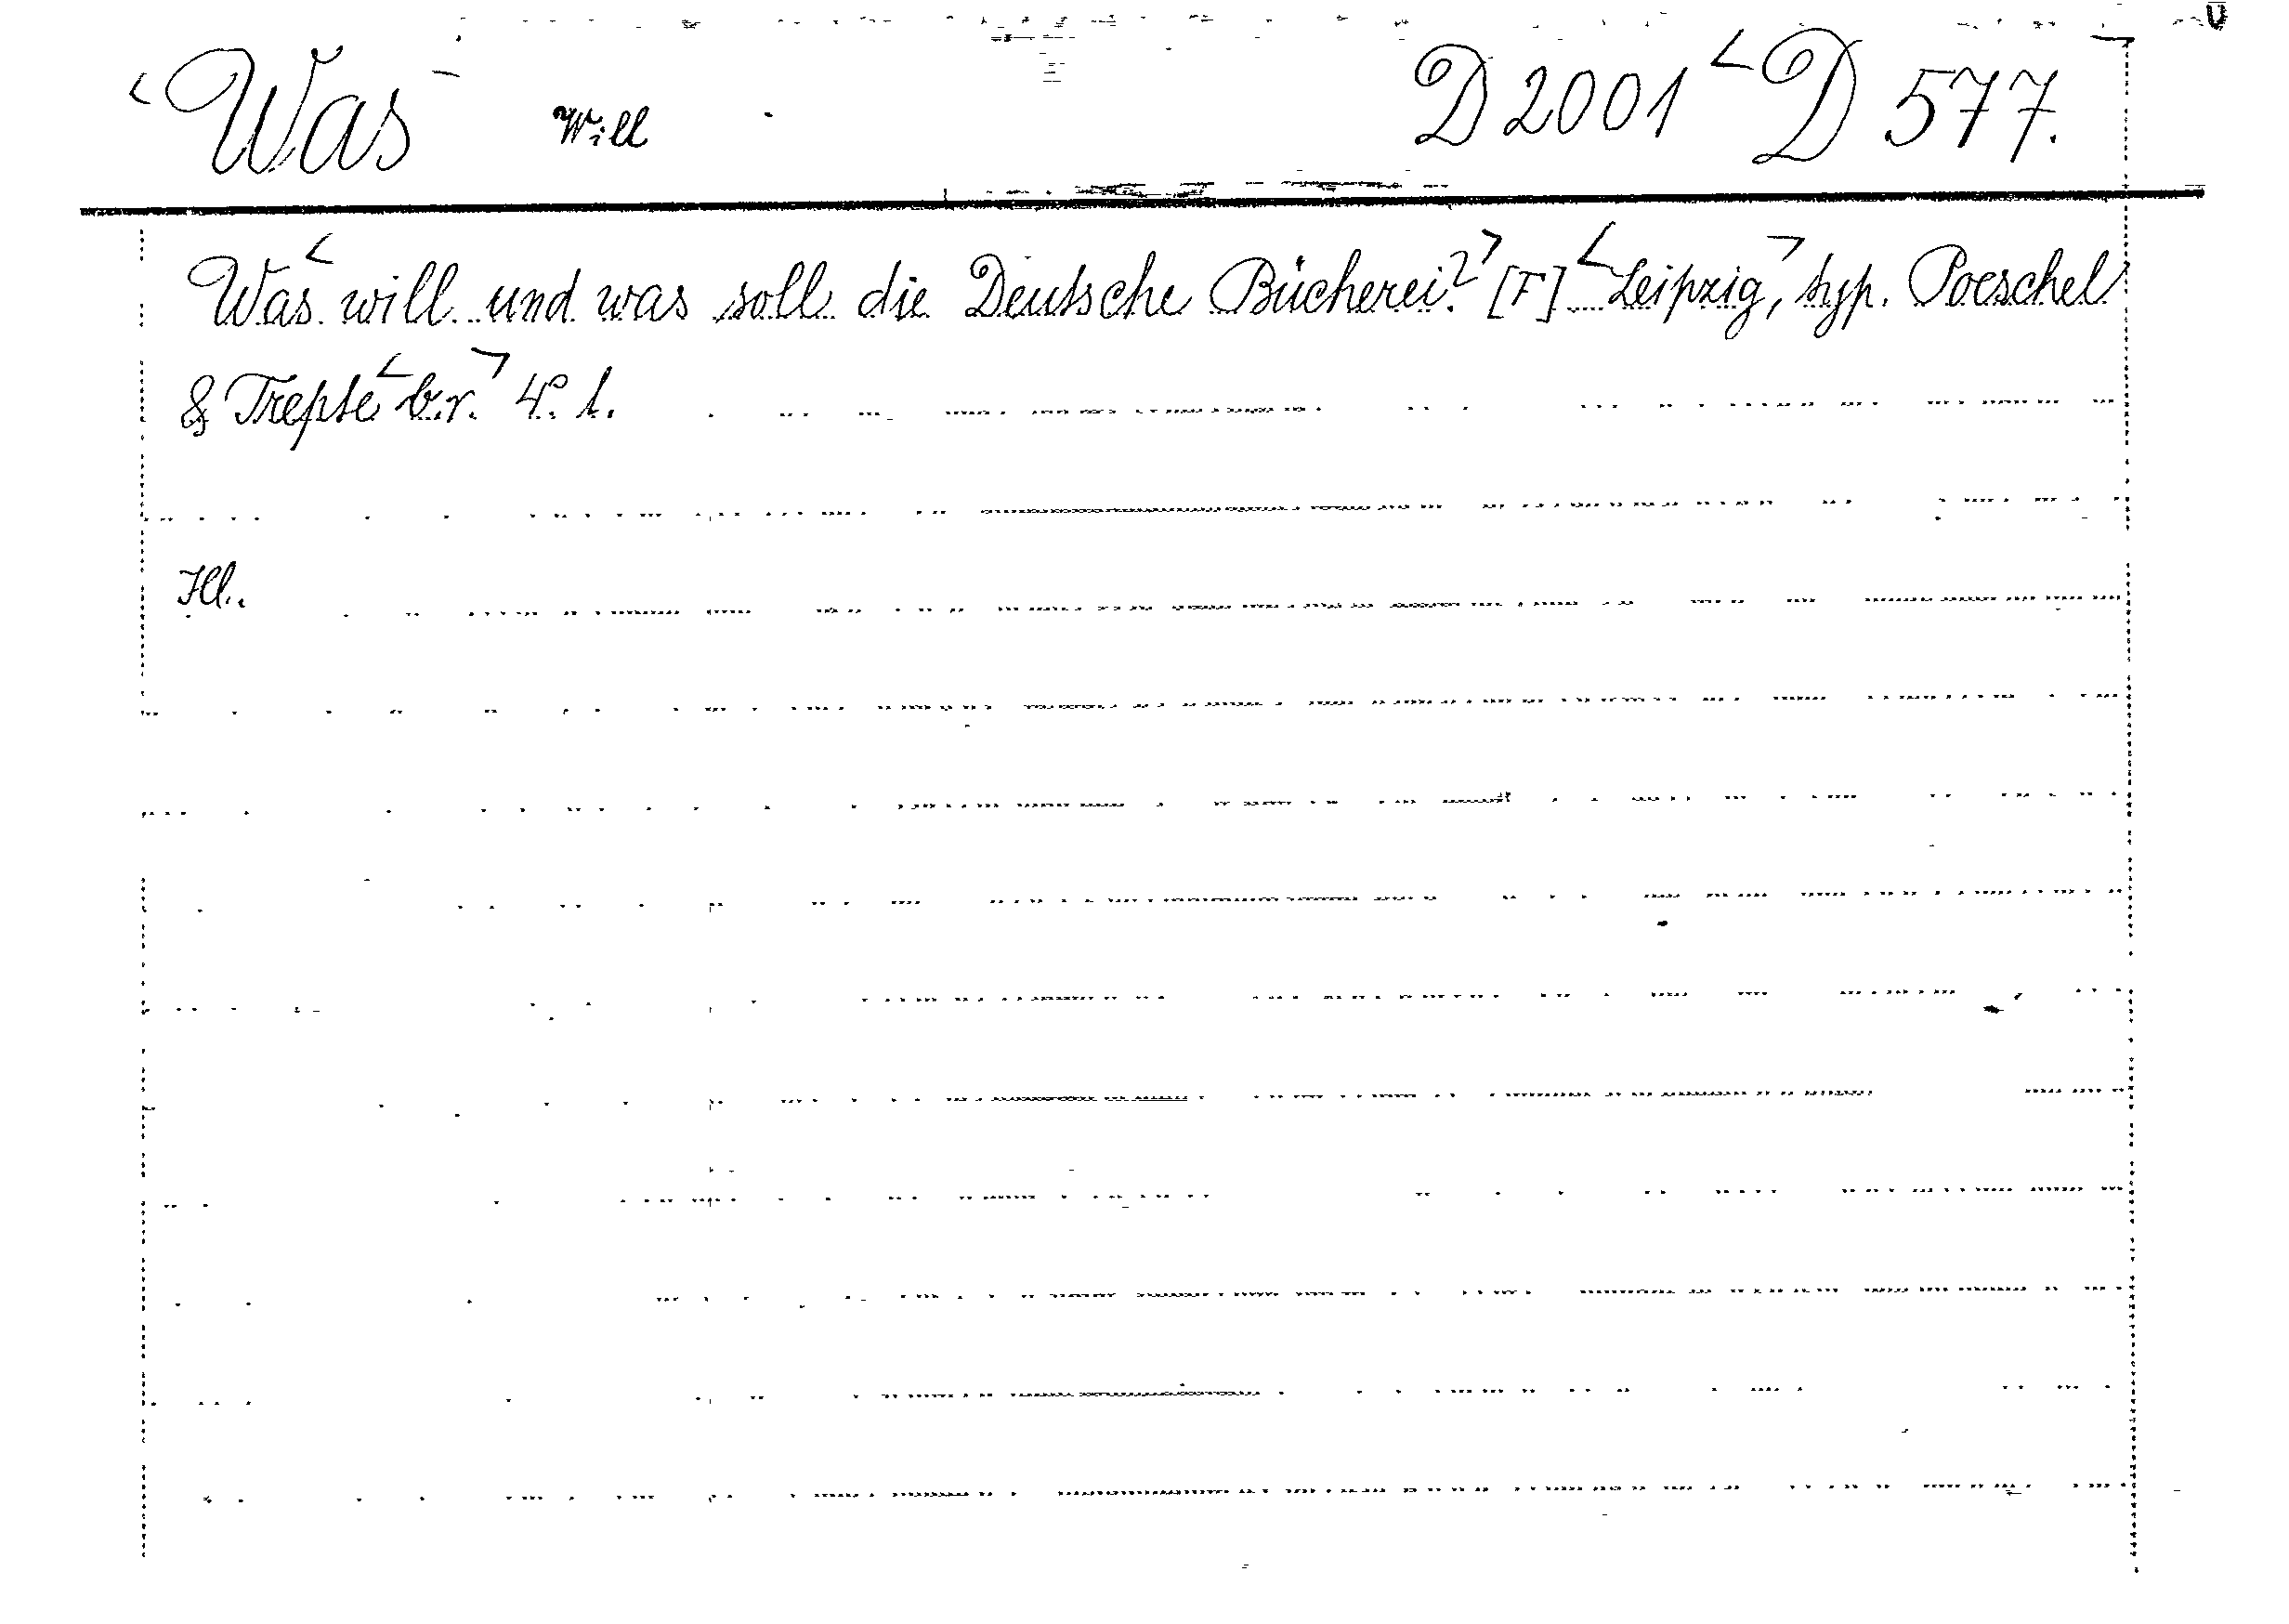 Was Will D 2001 D 577.
Was will und was soll die Deutsche Bücherei? [F] Leipzig, typ. Poeschel
& Trepte b.r. 4° 1.
Ill.